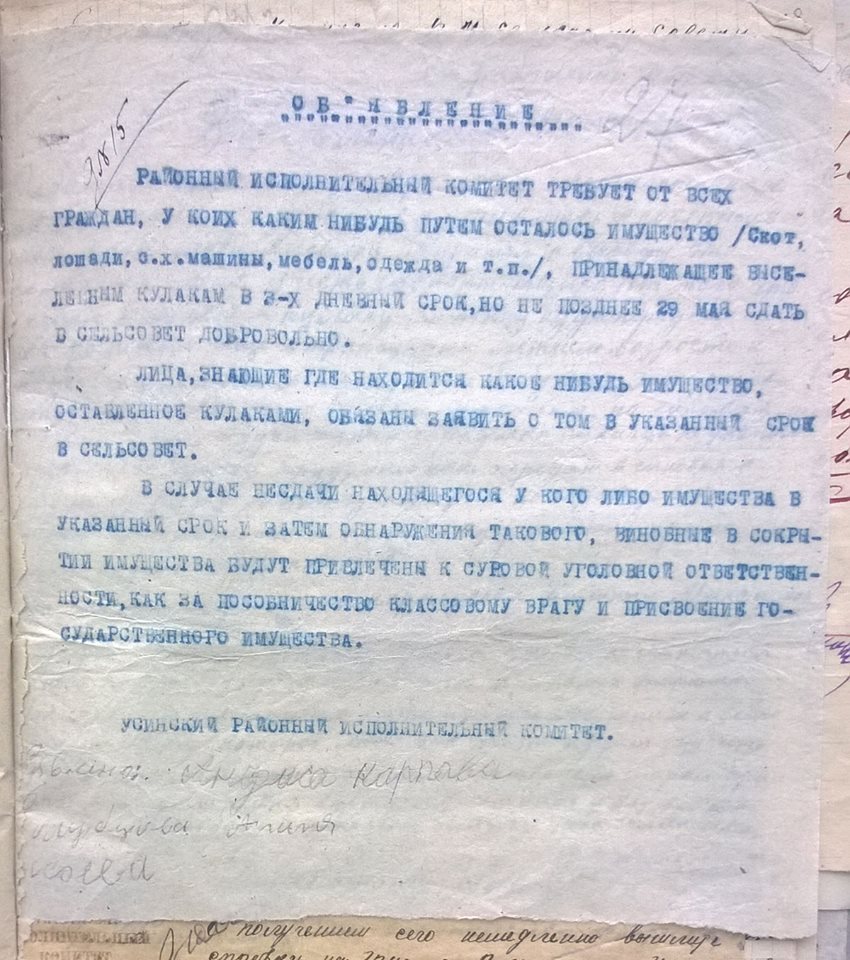 ОБ"ЯВЛЕНИЕ
24
РАЙОННЫЙ ИСПОЛНИТЕЛЬНЫЙ КОМИТЕТ ТРЕБУЕТ ОТ ВСЕХ
ГРАЖДАН, У КОИХ КАКИМ НИБУДЬ ПУТЕМ ОСТАЛОСЬ ИМУЩЕСТВО /Скот,
лошади,с.х.машины,мебель,одежда и т.п./, ПРИНАДЛЕЖАЩЕЕ ВЫСЕ-
ЛЕННЫМ КУЛАКАМ В 3-Х ДНЕВНЫЙ СРОК,НО НЕ ПОЗДНЕЕ 29 МАЯ СДАТЬ
В СЕЛЬСОВЕТ ДОБРОВОЛЬНО.
ЛИЦА,ЗНАЮЩИЕ ГДЕ НАХОДИТСЯ КАКОЕ НИБУДЬ ИМУЩЕСТВО,
ОСТАВЛЕННОЕ КУЛАКАМИ, ОБЯЗАНЫ ЗАЯВИТЬ О ТОМ В УКАЗАННЫЙ СРОК
В СЕЛЬСОВЕТ.
В СЛУЧАЕ НЕСДАЧИ НАХОДЯЩЕГОСЯ У КОГО ЛИБО ИМУЩЕСТВА В
УКАЗАННЫЙ СРОК И ЗАТЕМ ОБНАРУЖЕНИЯ ТАКОВОГО, ВИНОВНЫЕ В СОКРЫ-
ТИИ ИМУЩЕСТВА БУДУТ ПРИВЛЕЧЕНЫ К СУРОВОЙ УГОЛОВНОЙ ОТВЕТСТВЕН-
НОСТИ,КАК ЗА ПОСОБНИЧЕСТВО КЛАССОВОМУ ВРАГУ И ПРИСВОЕНИЕ ГО-
СУДАРСТВЕННОГО ИМУЩЕСТВА.
УСИНСКИЙ РАЙОННЫЙ ИСПОЛНИТЕЛЬНЫЙ КОМИТЕТ.
получением сего немедленно